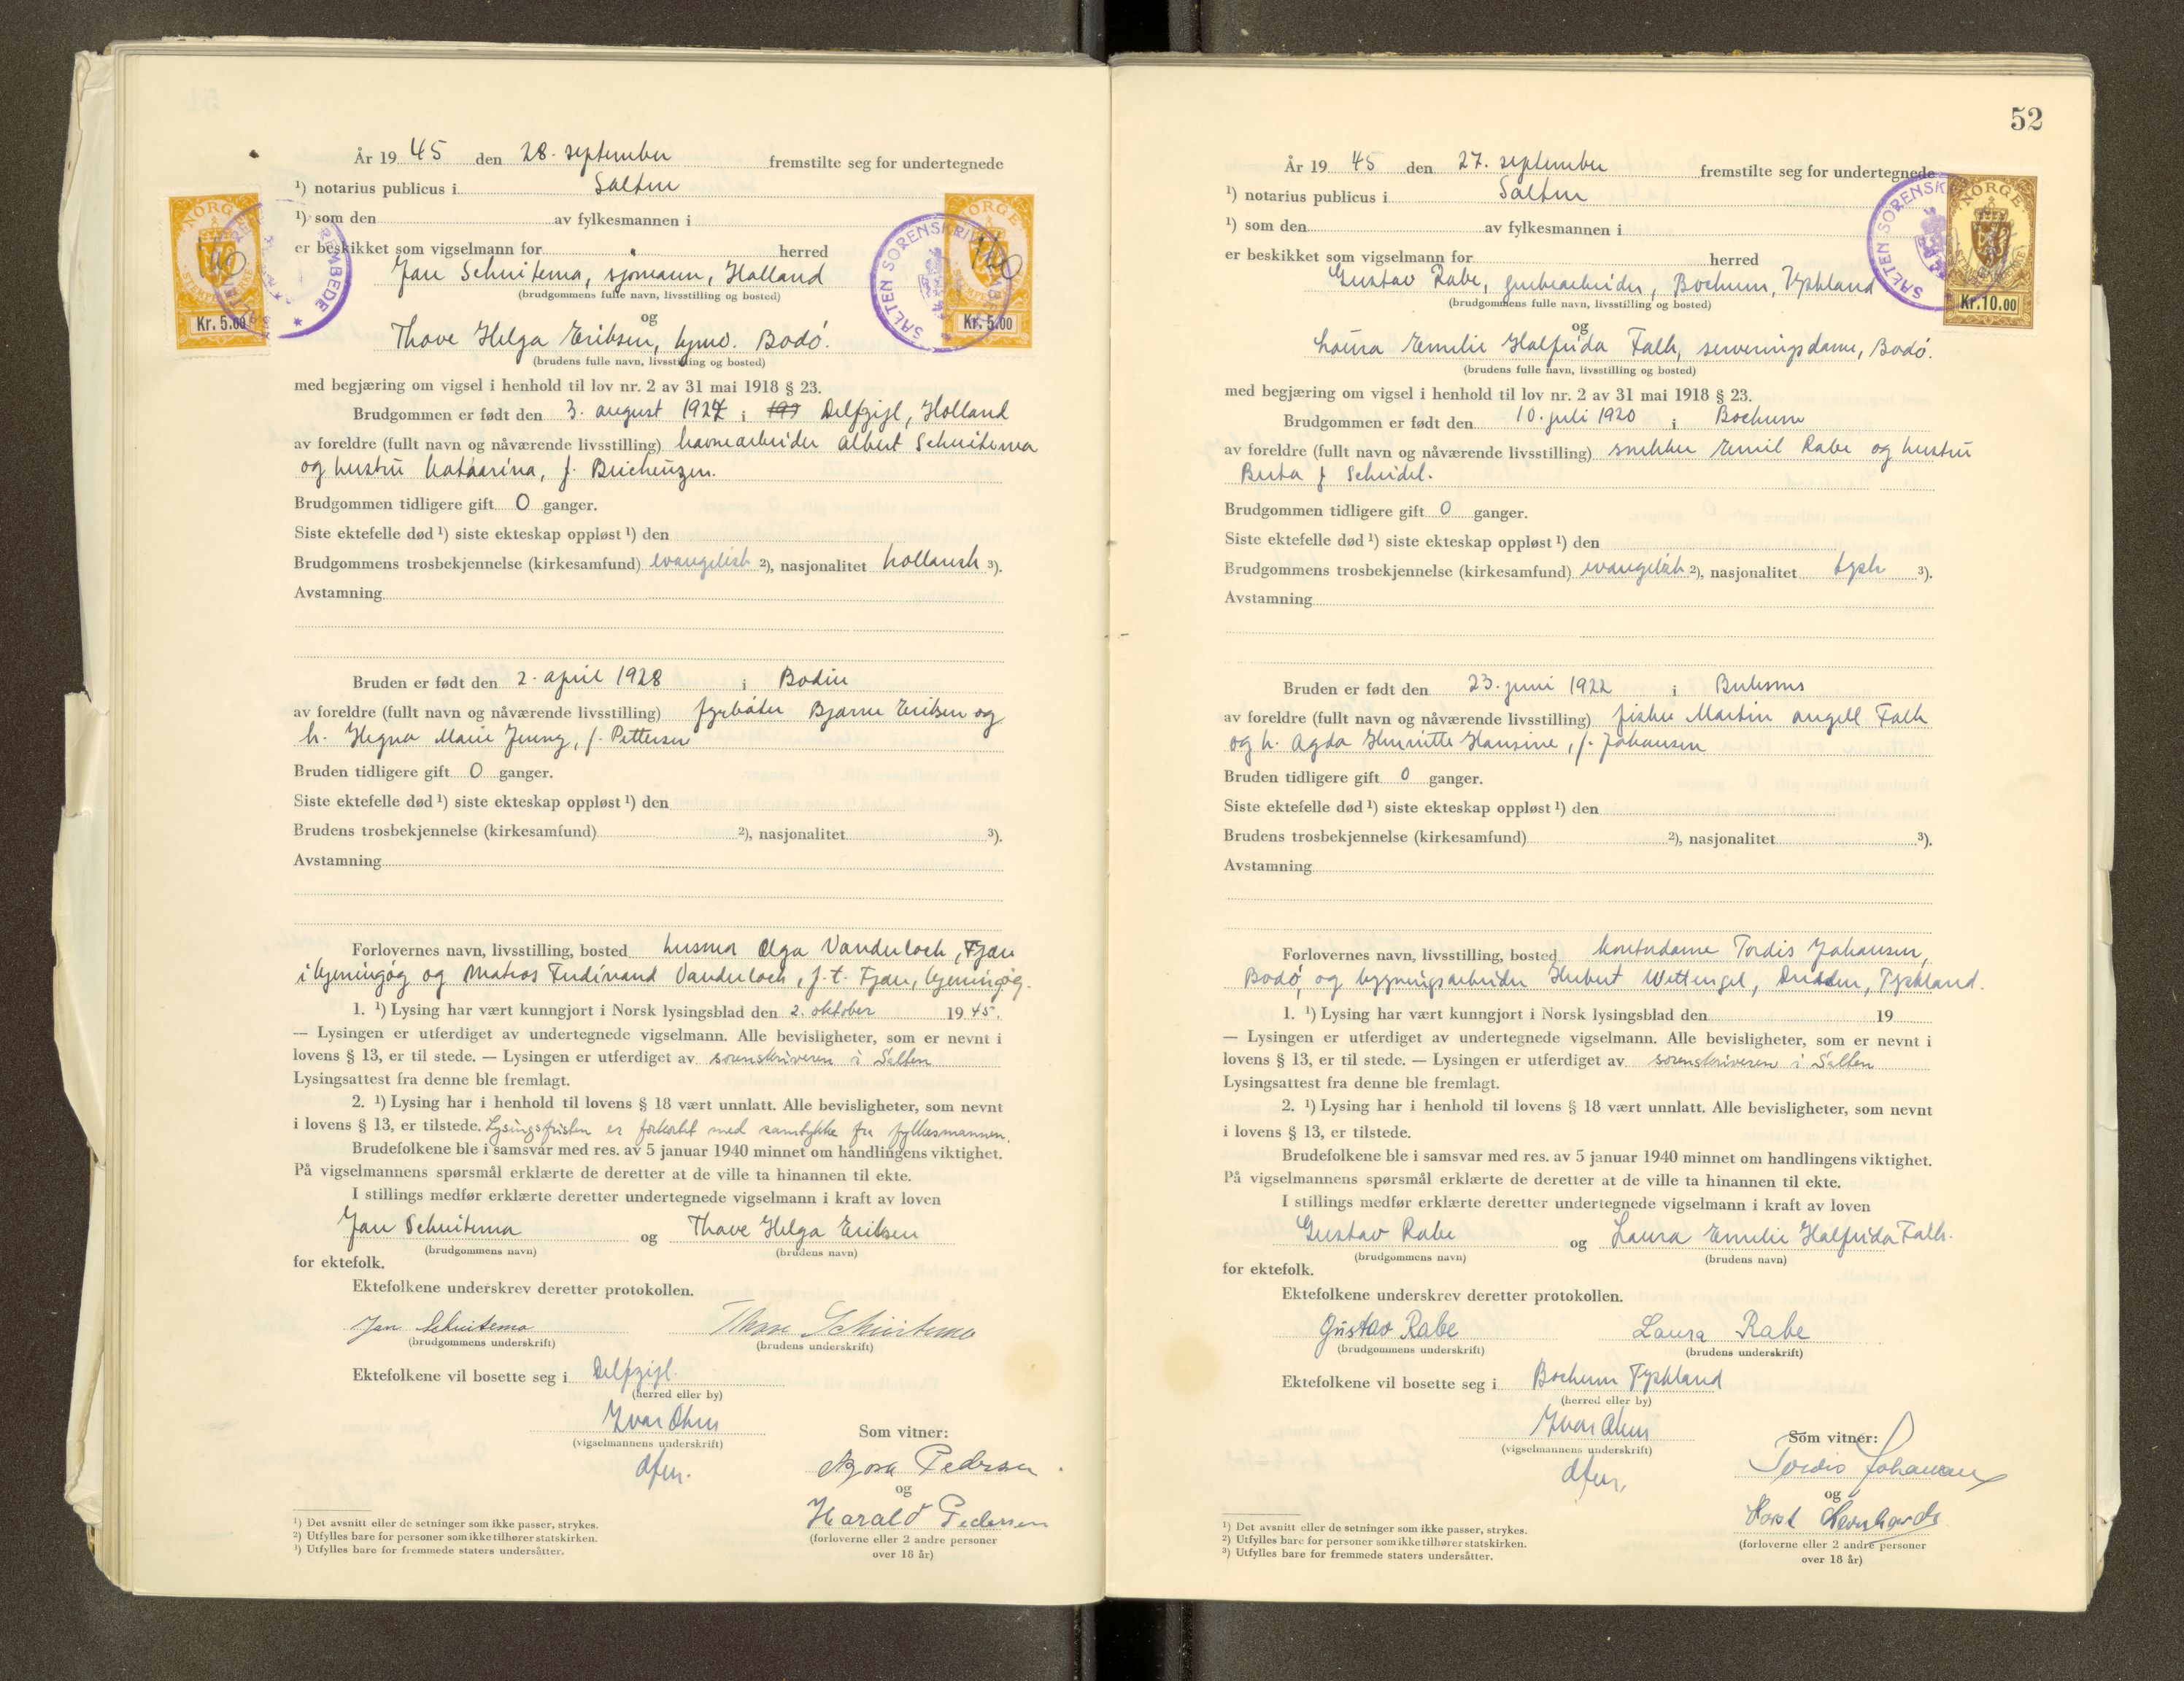 År 19 45 den 28. september fremstilte seg for undertegnede
¹) notarius publicus i Salten
¹) som den av fylkesmannen i
er beskikket som vigselmann for herred
Jan Schuitema, sjømann, Holland
(brudgommens fulle navn, livsstilling og bosted)
og
Thove Helga Eriksen, hjmv. Bodó.
(brudens fulle navn, livsstilling og bosted)
med begjæring om vigsel i henhold til lov nr. 2 av 31 mai 1918 § 23.
Brudgommen er født den 3. august 1924 i Delfzijl, Holland
av foreldre (fullt navn og nåværende livsstilling) havnearbeider Albert Schuitema
og hustru Kataarina, f.
Brudgommen tidligere gift 0 ganger.
Siste ektefelle død ¹) siste ekteskap oppløst ¹) den
Brudgommens trosbekjennelse (kirkesamfund) evangelisk ²), nasjonalitet hollansk ³).
Avstamning
Bruden er født den 2. april 1928 i Bodin
av foreldre (fullt navn og nåværende livsstilling) fyrbøter Bjarne Eriksen og
h. Hegna Marie Jenny, f. Pettersen
Bruden tidligere gift 0 ganger.
Siste ektefelle død ¹) siste ekteskap oppløst ¹) den
Brudens trosbekjennelse (kirkesamfund) ²), nasjonalitet ³).
Avstamning
Forlovernes navn, livsstilling, bosted husmor Olga Vanderloch, Fjære
i Kjerringøy og Matros Ferdinand Vanderloch, f. t. Fjære, Kjerringøy.
1. ¹) Lysing har vært kunngjort i Norsk lysingsblad den 2. oktober 19 45.
— Lysingen er utferdiget av undertegnede vigselmann. Alle bevisligheter, som er nevnt i
lovens § 13, er til stede. — Lysingen er utferdiget av sorenskriveren i Salten
Lysingsattest fra denne ble fremlagt.
2. ¹) Lysing har i henhold til lovens § 18 vært unnlatt. Alle bevisligheter, som nevnt
i lovens § 13, er tilstede. Lysingsfristen er forkortet med samtykke fra fylkesmannen.
Brudefolkene ble i samsvar med res. av 5 januar 1940 minnet om handlingens viktighet.
På vigselmannens spørsmål erklærte de deretter at de ville ta hinannen til ekte.
I stillings medfør erklærte deretter undertegnede vigselmann i kraft av loven
Jan Schuitema og Thove Helga Eriksen
(brudgommens navn) (brudens navn)
for ektefolk.
Ektefolkene underskrev deretter protokollen.
Jan Schuitema Thove Schuitema
(brudgommens underskrift) (brudens underskrift)
Ektefolkene vil bosette seg i Delfzijl.
(herred eller by)
Yvar Ohrn
(vigselmannens underskrift)
Som vitner:
dfm.
Pedersen
og
Harald Pedersen
(forloverne eller 2 andre personer
over 18 år)
¹) Det avsnitt eller de setninger som ikke passer, strykes.
²) Utfylles bare for personer som ikke tilhører statskirken.
³) Utfylles bare for fremmede staters undersåtter.
NORGE
Kr. 5.00
SALTEN SORENSKRIVEREMBEDE
NORGE
Kr. 5.00
52
År 19 45 den 27. september fremstilte seg for undertegnede
¹) notarius publicus i Salten
¹) som den av fylkesmannen i
er beskikket som vigselmann for herred
Gustav Rabe, grubearbeider, Bochum, Tyskland
(brudgommens fulle navn, livsstilling og bosted)
og
Laura Emelie Halfrida Falk, serveringsdame, Bodó.
(brudens fulle navn, livsstilling og bosted)
med begjæring om vigsel i henhold til lov nr. 2 av 31 mai 1918 § 23.
Brudgommen er født den 10. juli 1920 i Bochum
av foreldre (fullt navn og nåværende livsstilling) snekker Emil Rabe og hustru
Berta f Scheidel.
Brudgommen tidligere gift 0 ganger.
Siste ektefelle død ¹) siste ekteskap oppløst ¹) den
Brudgommens trosbekjennelse (kirkesamfund) evangelisk ²), nasjonalitet tysk ³).
Avstamning
Bruden er født den 23. juni 1922 i Buksnes
av foreldre (fullt navn og nåværende livsstilling) fisker Martin Angell Falk
og h. Agda Henriette Hansine, f. Johansen
Bruden tidligere gift 0 ganger.
Siste ektefelle død ¹) siste ekteskap oppløst ¹) den
Brudens trosbekjennelse (kirkesamfund) ²), nasjonalitet ³).
Avstamning
Forlovernes navn, livsstilling, bosted kontordame Tordis Johansen,
Bodó, og bygningsarbeider Herbert Wettengel, Dresden, Tyskland.
1. ¹) Lysing har vært kunngjort i Norsk lysingsblad den 19
— Lysingen er utferdiget av undertegnede vigselmann. Alle bevisligheter, som er nevnt i
lovens § 13, er til stede. — Lysingen er utferdiget av sorenskriveren i Salten
Lysingsattest fra denne ble fremlagt.
2. ¹) Lysing har i henhold til lovens § 18 vært unnlatt. Alle bevisligheter, som nevnt
i lovens § 13, er tilstede.
Brudefolkene ble i samsvar med res. av 5 januar 1940 minnet om handlingens viktighet.
På vigselmannens spørsmål erklærte de deretter at de ville ta hinannen til ekte.
I stillings medfør erklærte deretter undertegnede vigselmann i kraft av loven
Gustav Rabe og Laura Emelie Halfrida Falk.
(brudgommens navn) (brudens navn)
for ektefolk.
Ektefolkene underskrev deretter protokollen.
Gustav Rabe Laura Rabe
(brudgommens underskrift) (brudens underskrift)
Ektefolkene vil bosette seg i Bochum Tyskland
(herred eller by)
Yvar Ohrn
(vigselmannens underskrift)
Som vitner:
dfm.
Tordis Johansen
og
Horst Leonhardt
(forloverne eller 2 andre personer
over 18 år)
¹) Det avsnitt eller de setninger som ikke passer, strykes.
²) Utfylles bare for personer som ikke tilhører statskirken.
³) Utfylles bare for fremmede staters undersåtter.
NORGE
Kr. 10.00